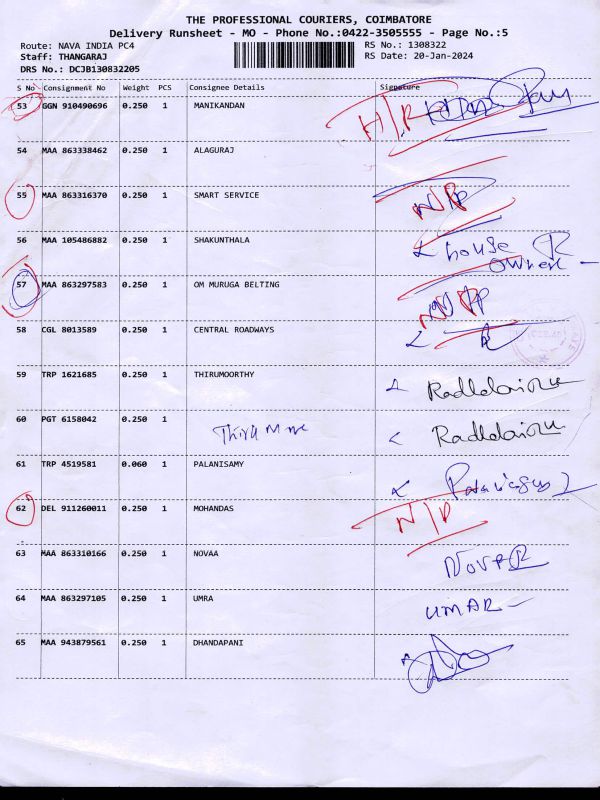 THE PROFESSIONAL COURIERS, COIMBATORE
Delivery Runsheet - MO - Phone No.:0422-3505555 - Page No.:5
Route: NAVA INDIA PC4 RS No.: 1308322
Staff: THANGARAJ RS Date: 20-Jan-2024
DRS No.: DCJB130832205
S No Consignment No Weight PCS Consignee Details Signature
53 GGN 910490696 0.250 1 MANIKANDAN
54 MAA 863338462 0.250 1 ALAGURAJ
55 MAA 863316370 0.250 1 SMART SERVICE N/P
56 MAA 105486882 0.250 1 SHAKUNTHALA house
owner
57 MAA 863297583 0.250 1 OM MURUGA BELTING
58 CGL 8013589 0.250 1 CENTRAL ROADWAYS
59 TRP 1621685 0.250 1 THIRUMOORTHY
60 PGT 6158042 0.250 1
61 TRP 4519581 0.060 1 PALANISAMY
62 DEL 911260011 0.250 1 MOHANDAS N/P
63 MAA 863310166 0.250 1 NOVAA
64 MAA 863297105 0.250 1 UMRA UMAR
65 MAA 943879561 0.250 1 DHANDAPANI